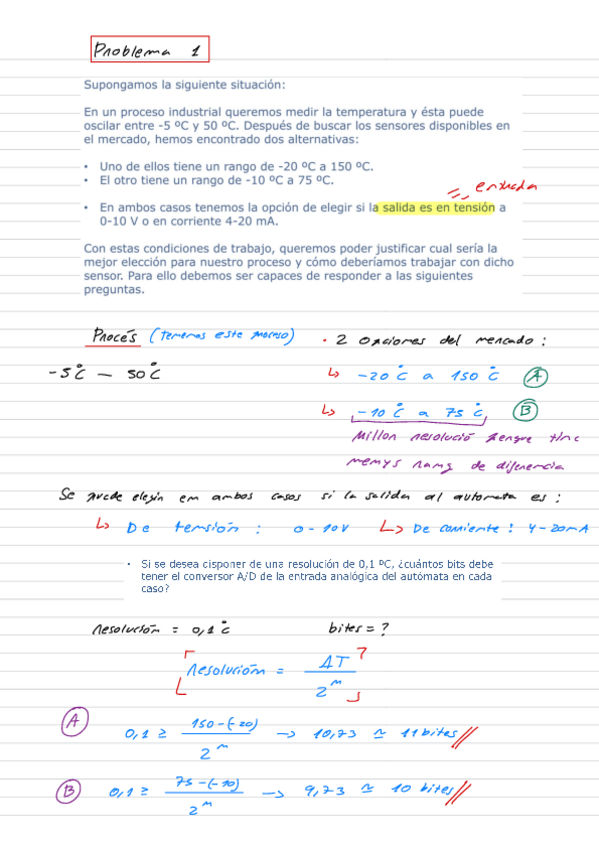 Problema 1
Supongamos la siguiente situación:
En un proceso industrial queremos medir la temperatura y ésta puede
oscilar entre -5 ºC y 50 ºC. Después de buscar los sensores disponibles en
el mercado, hemos encontrado dos alternativas:
• Uno de ellos tiene un rango de -20 ºC a 150 ºC.
• El otro tiene un rango de -10 ºC a 75 ºC.
entrada
• En ambos casos tenemos la opción de elegir si la salida es en tensión a
0-10 V o en corriente 4-20 mA.
Con estas condiciones de trabajo, queremos poder justificar cual sería la
mejor elección para nuestro proceso y cómo deberíamos trabajar con dicho
sensor. Para ello debemos ser capaces de responder a las siguientes
preguntas.
Procés (tenemos este proceso) • 2 opciones del mercado:
-5°C — 50°C
↳ -20°C a 150°C A
↳ -10°C a 75°C B
Millor resolució perque tinc
menys rang de diferencia
Se puede elegir em ambos casos si la salida al automata es:
↳ De tensión: 0-10V ↳ De corriente: 4-20mA
• Si se desea disponer de una resolución de 0,1 ºC, ¿cuántos bits debe
tener el conversor A/D de la entrada analógica del autómata en cada
caso?
Resolución = 0,1°C bites = ?
Resolución = ΔT / 2^n
A 0,1 ≥ 150-(-20) / 2^n → 10,73 ≃ 11 bites //
B 0,1 ≥ 75-(-10) / 2^n → 9,73 ≃ 10 bites //